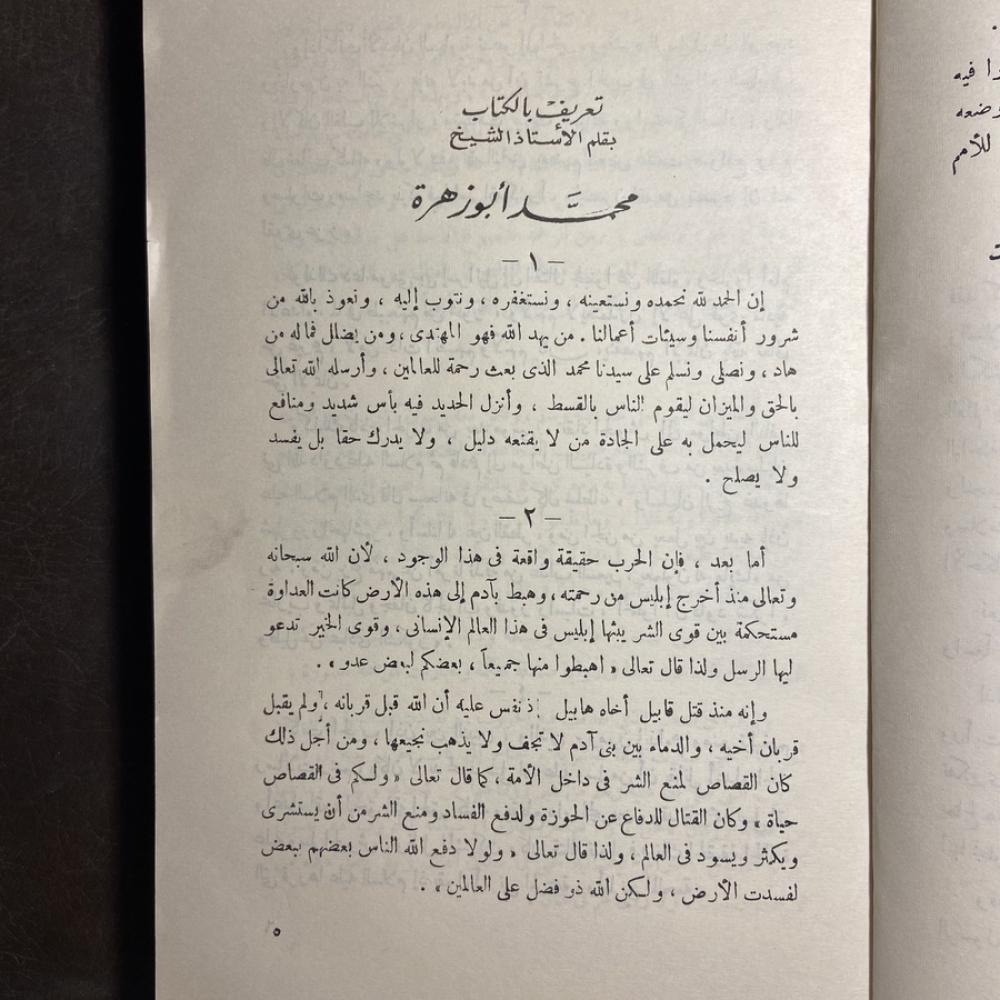 تعريف بالكتاب
بقلم الأستاذ الشيخ
محمد أبو زهرة
— ١ —
إن الحمد لله نحمده ونستعينه ، ونستغفره ، ونتوب إليه ، ونعوذ بالله من
شرور أنفسنا وسيئات أعمالنا . من يهد الله فهو المهتدى ، ومن يضلل فماله من
هاد ، ونصلى ونسلم على سيدنا محمد الذى بعث رحمة للعالمين ، وأرسله الله تعالى
بالحق والميزان ليقوم الناس بالقسط ، وأنزل الحديد فيه بأس شديد ومنافع
للناس ليحمل به على الجادة من لا يقنعه دليل ، ولا يدرك حقا بل يفسد
ولا يصلح .
— ٢ —
أما بعد ، فإن الحرب حقيقة واقعة فى هذا الوجود ، لأن الله سبحانه
وتعالى منذ أخرج إبليس من رحمته ، وهبط بآدم إلى هذه الأرض كانت العداوة
مستحكمة بين قوى الشر يبثها إبليس فى هذا العالم الإنسانى ، وقوى الخير تدعو
ليها الرسل ولذا قال تعالى « اهبطوا منها جميعاً ، بعضكم لبعض عدو » .
وإنه منذ قتل قابيل أخاه هابيل إذ نفس عليه أن الله قبل قربانه ، ولم يقبل
قربان أخيه ، والدماء بين بنى آدم لا تجف ولا يذهب نجيعها ، ومن أجل ذلك
كان القصاص لمنع الشر فى داخل الأمة ، كما قال تعالى « ولكم فى القصاص
حياة » وكان القتال للدفاع عن الحوزة ولدفع الفساد ومنع الشر من أن يستشرى
ويكثر ويسود فى العالم ، ولذا قال تعالى « ولولا دفع الله الناس بعضهم ببعض
لفسدت الأرض ، ولكن الله ذو فضل على العالمين » .
٥
فيه
للأمم